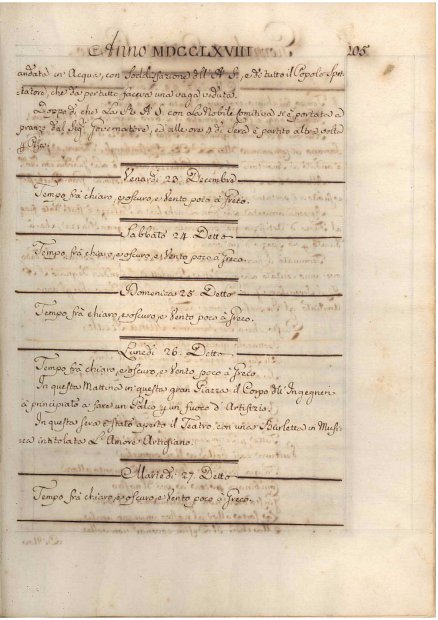 Anno MDCCLXVIII 205
andata in Acqua, con Soddisfazione dell'A. S., e di tutto il Popolo Spet-
tatore, che da pertutto faceva una vaga veduta.
Doppo di che La R. A. S. con La Nobile comitiva si è portata a
pranzo dal Sigr. Governatore, ed alle ore 9 di Sera è partito altra volta
p Pisa.
Venardi 23. Decembre
Tempo frà chiaro, e oscuro, e Vento poco à Greco.
Sabbato 24. Detto
Tempo frà chiaro, e oscuro, e Vento poco à Greco
Domenica 25. Detto
Tempo frà chiaro, e oscuro, e Vento poco à Greco.
Lunedi 26. Detto
Tempo frà chiaro, e oscuro, e Vento poco à Greco
In questa Mattina in questa gran Piazza il Corpo d'Ingegneri
à principiato a fare un Palco p un fuoco d'Artifizio.
In questa sera è stato aperto il Teatro con una Burletta in Musi-
ca intitolata L'Amore Artigiano.
Martedi 27. Detto
Tempo frà chiaro, e oscuro, e Vento poco à Greco.